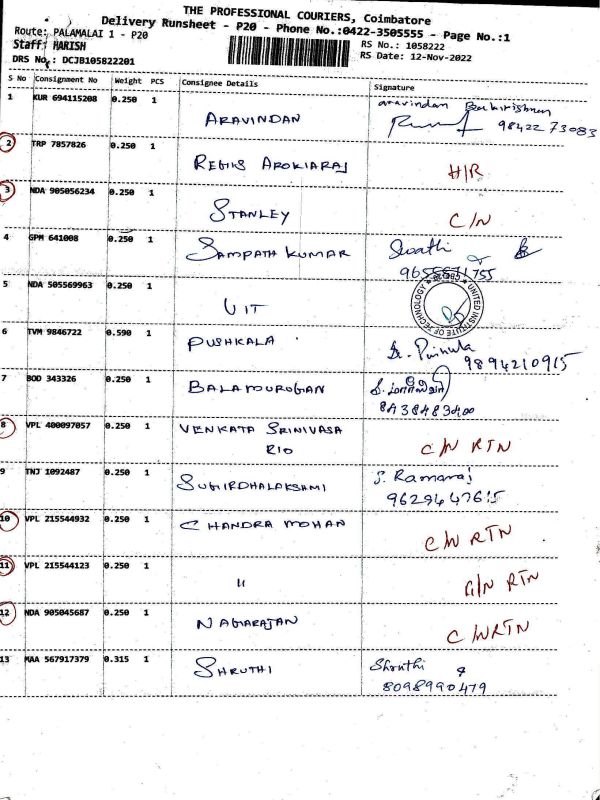 THE PROFESSIONAL COURIERS, Coimbatore
Delivery Runsheet - P20 - Phone No.:0422-3505555 - Page No.:1
Route: PALAMALAI 1 - P20
RS No.: 1058222
Staff: HARISH
RS Date: 12-Nov-2022
DRS No.: DCJB105822201
S No Consignment No Weight PCS Consignee Details Signature
1 KUR 694115208 0.250 1 ARAVINDAN aravindan
98422 73083
2 TRP 7857826 0.250 1 REGIS AROKIARAJ H/R
3 NDA 905056234 0.250 1 STANLEY C/N
4 GPM 641008 0.250 1 SAMPATH KUMAR Swathi
5 NDA 505569963 0.250 1 UIT UNITED INSTITUTE OF TECHNOLOGY
6 TVM 9846722 0.590 1 PUSHKALA
9894210915
7 BOD 343326 0.250 1 BALAMURUGAN
8 VPL 400097057 0.250 1 VENKATA SRINIVASA C/N RTN
RIO
9 TNJ 1092487 0.250 1 SUGIRDHALAKSAMI S. Ramaraj
9629447615
10 VPL 215544932 0.250 1 CHANDRA MOHAN C/N RTN
11 VPL 215544123 0.250 1 " RTN
12 NDA 905045687 0.250 1 NAGARAJAN C/N RTN
13 MAA 567917379 0.315 1 SHRUTHI Shruthi
8098990479